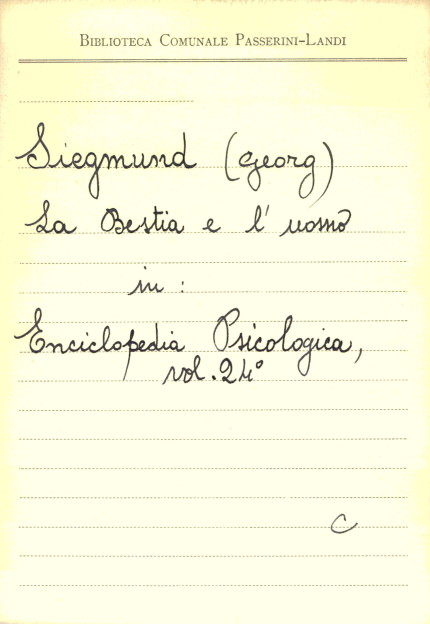 BIBLIOTECA COMUNALE PASSERINI-LANDI
Siegmund (Georg)
La Bestia e l' uomo
in :
Enciclopedia Psicologica,
vol. 24°
C